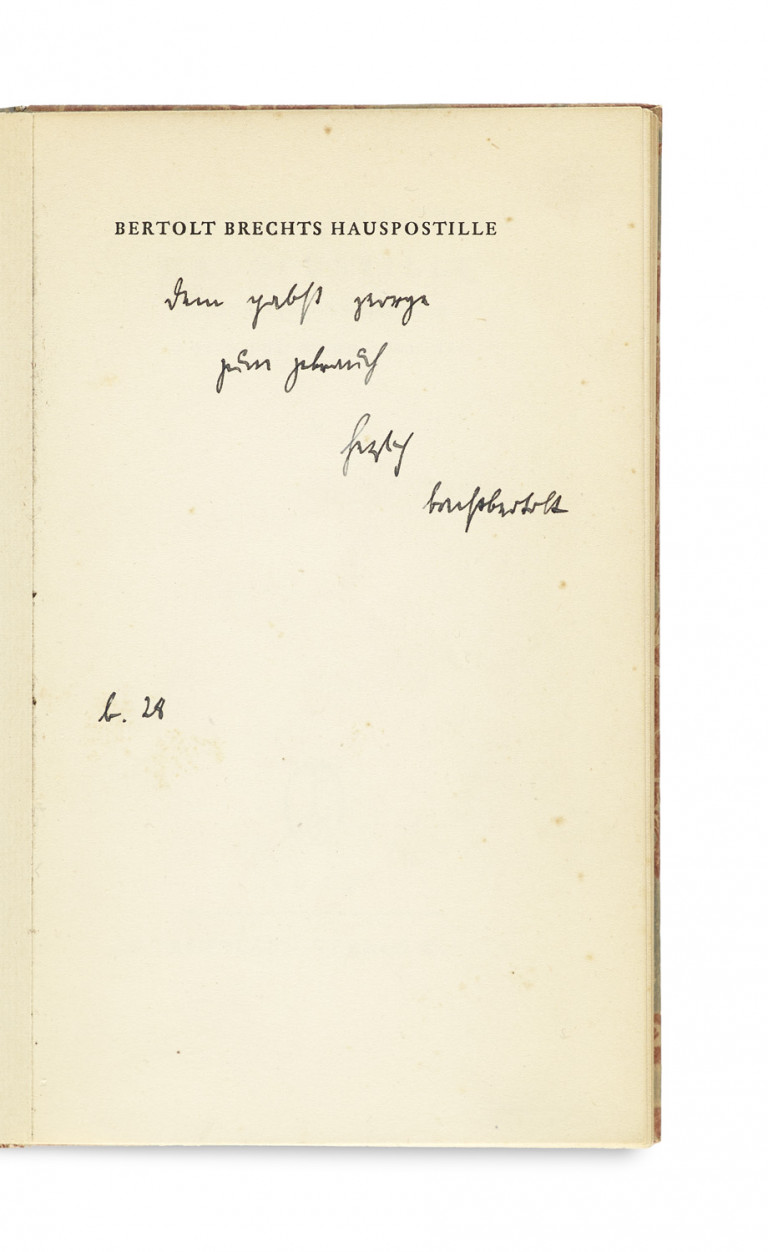 BERTOLT BRECHTS HAUSPOSTILLE
dem pabst george
zum gebrauch
herzlich
brechtbertolt
b. 28